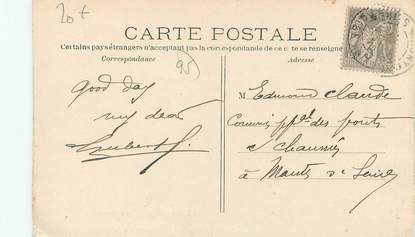 20 €
CARTE POSTALE
Certains pays étrangers n'acceptant pas la correspondance de ce côté se renseigner
Correspondance
Adresse
95
Good day
my dear
M. Edmond Claude
Commis ppal des ponts
& chaussées
à Mantes s/ Seine